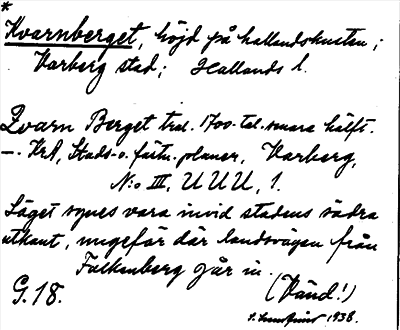 *
Kvarnberget, höjd på hallandskusten;
Varberg stad; Hallands l.
Qvarn Berget trol. 1700-tal. senare hälft.
—. KrA, Stads- o. fästn. planer, Varberg,
N:o III, UUU, 1.
Läget synes vara invid stadens södra
utkant, ungefär där landsvägen från
Falkenberg går in.
(Vänd!)
G.18.
1938.